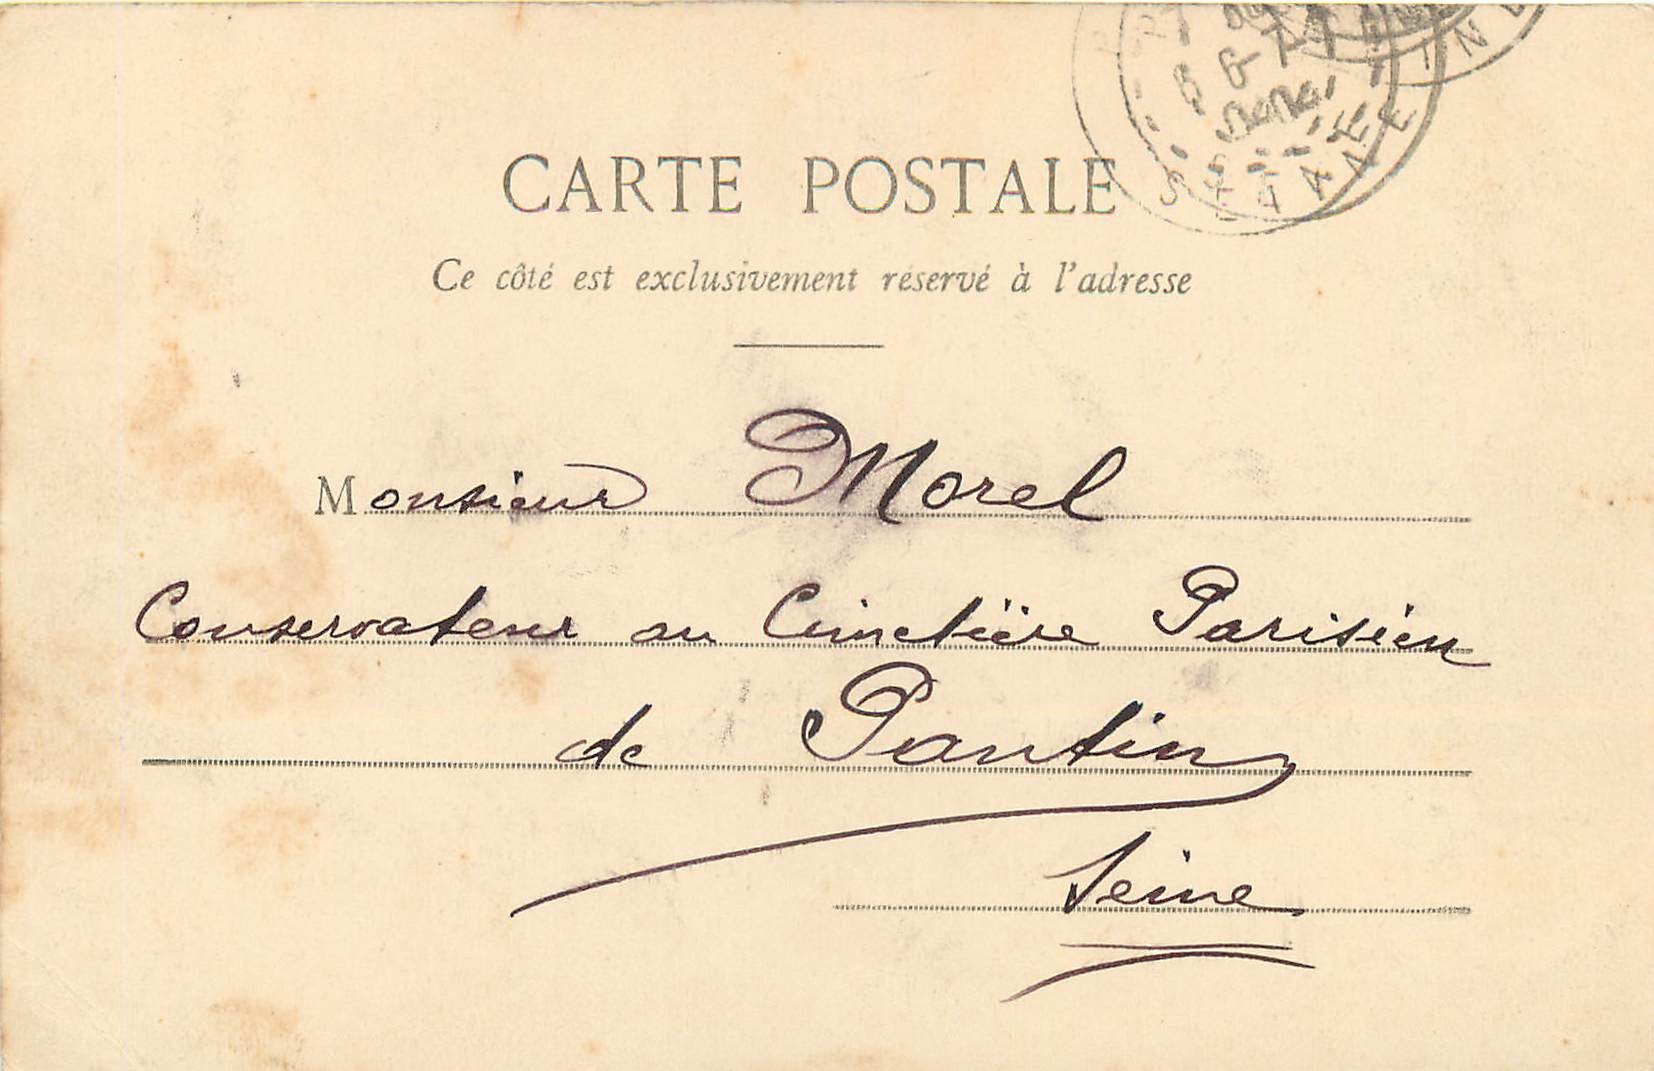 CARTE POSTALE
Ce côté est exclusivement réservé à l'adresse
Monsieur Morel
Conservateur au Cimetière Parisien
de Pantin
Seine